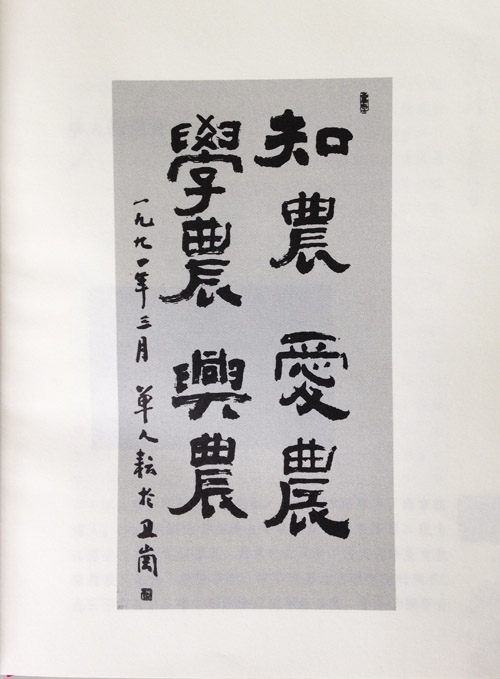 知農 愛農
學農 興農
一九九一年三月 單人耘於卫崗